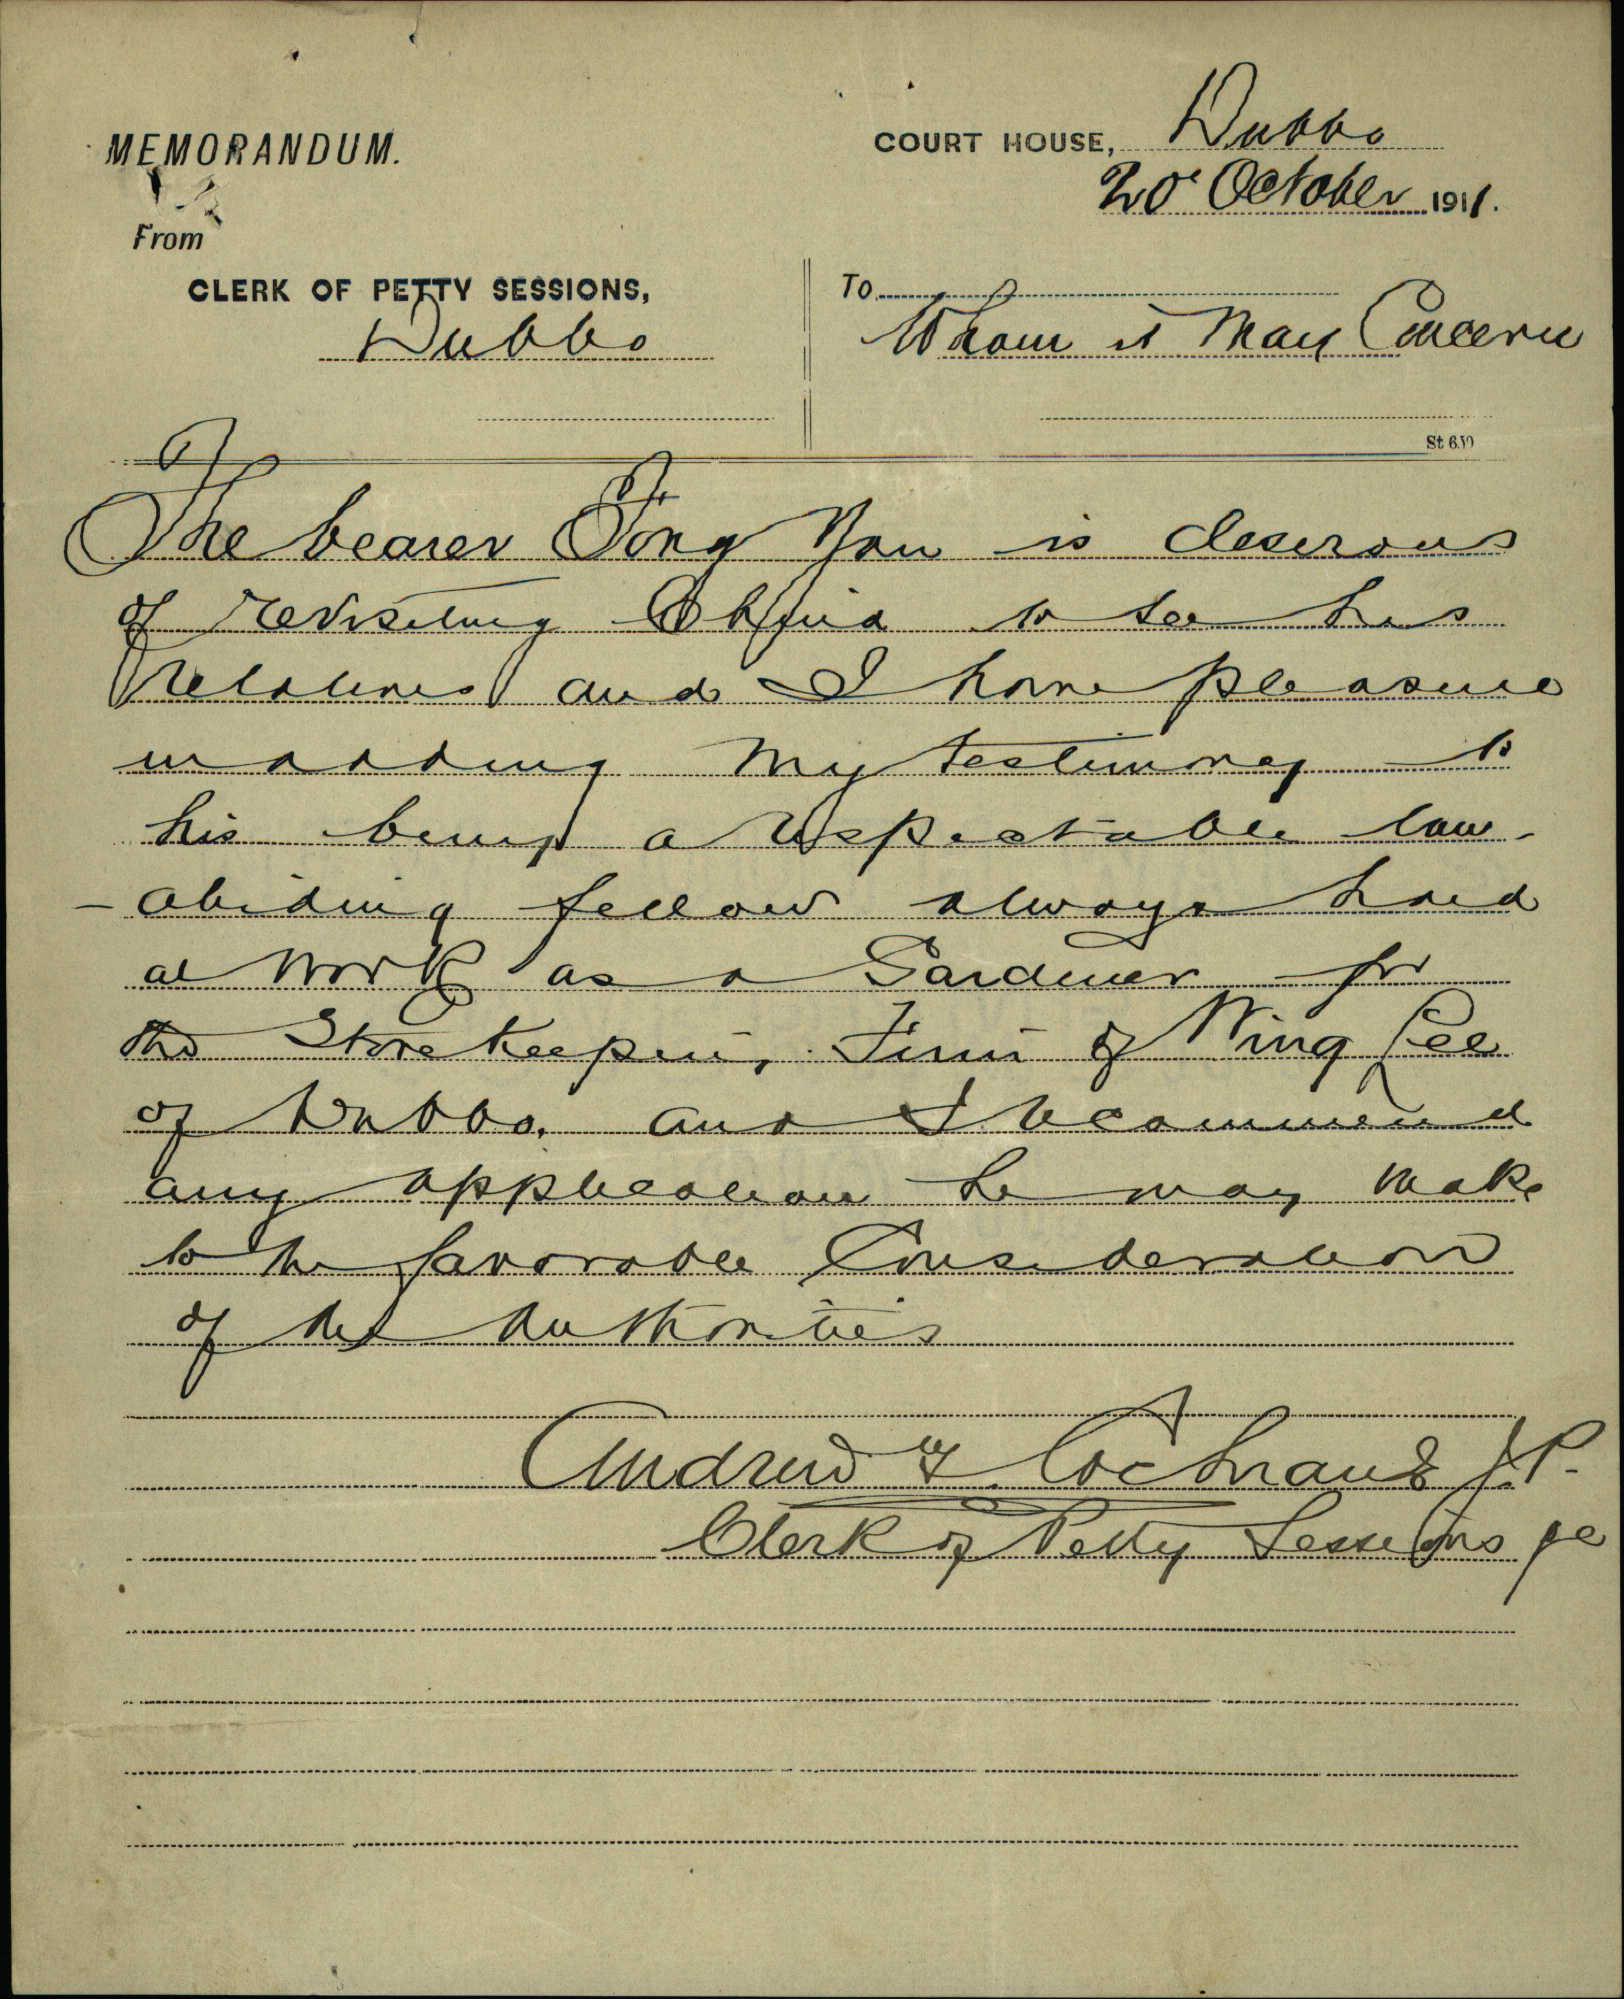 MEMORANDUM.
COURT HOUSE, Dubbo
20 October 1911.
From
CLERK OF PETTY SESSIONS,
Dubbo
To
Whom it May Concern
St 6.10
The bearer Fong You is desirous
of revisiting China to see his
relatives and I have pleasure
in adding my testimony to
his being a respectable law-
-abiding fellow always hard
at work as a Gardener for
the Storekeeping Firm of Wing Lee
of Dubbo. and I recommend
any application he may make
to the favorable Consideration
of the Authorities
Andrew F. Cochrane J.P.
Clerk of Petty Sessions